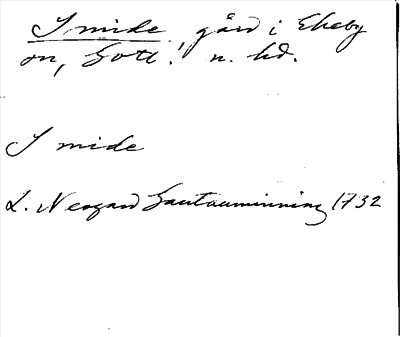 Smide, gård i Ekeby
sn, Gotl. n. hd.
Smide
L. Neogard Gautauminning 1732